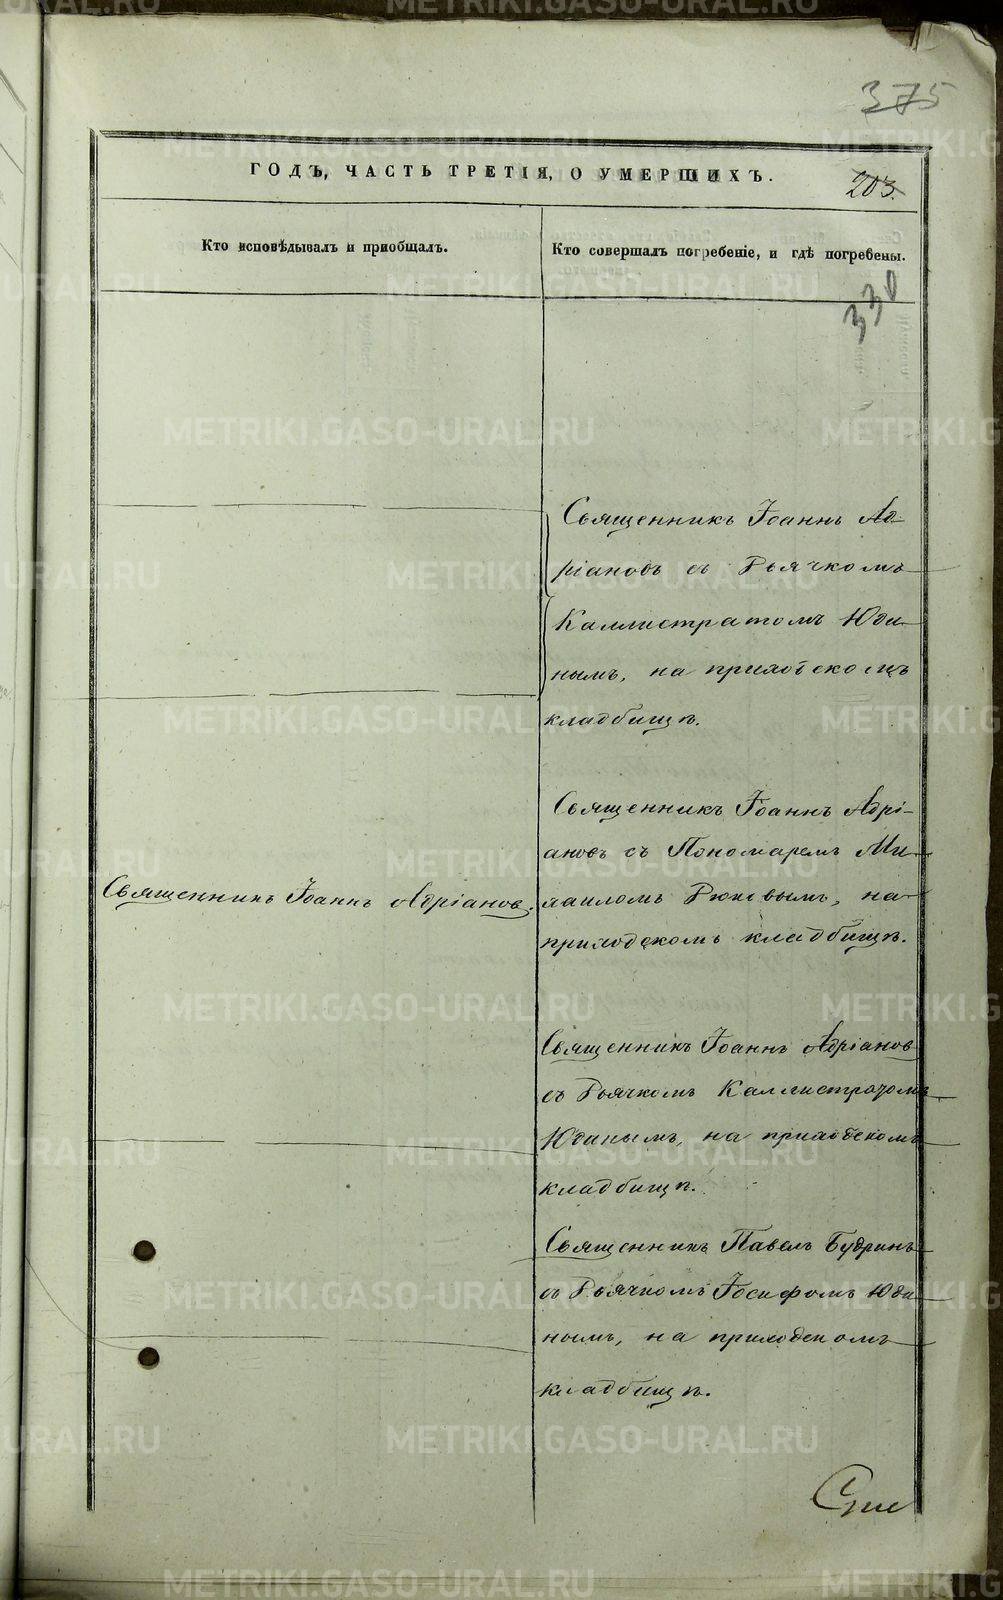 375
ГОДЪ, ЧАСТЬ ТРЕТІЯ, О УМЕРШИХЪ.
203.
Кто исповѣдывалъ и пріобщалъ.
Кто совершалъ погребеніе, и гдѣ погребены.
330
Священникъ Іоаннъ Ад-
ріановъ съ Дьячкомъ
Каллистратомъ Юди-
нымъ, на приходскомъ
кладбищѣ.
Священникъ Іоаннъ Адріановъ.
Священникъ Іоаннъ Адрі-
ановъ съ Пономаремъ Ми-
хаиломъ на
приходскомъ кладбищѣ.
Священникъ Іоаннъ Адріановъ
съ Дьячкомъ Каллистратомъ
Юдинымъ, на приходскомъ
кладбищѣ.
Священникъ Павелъ Будринъ
съ Дьячкомъ Іосифомъ Юди-
нымъ, на приходскомъ
кладбищѣ.
METRIKI.GASO-URAL.RU